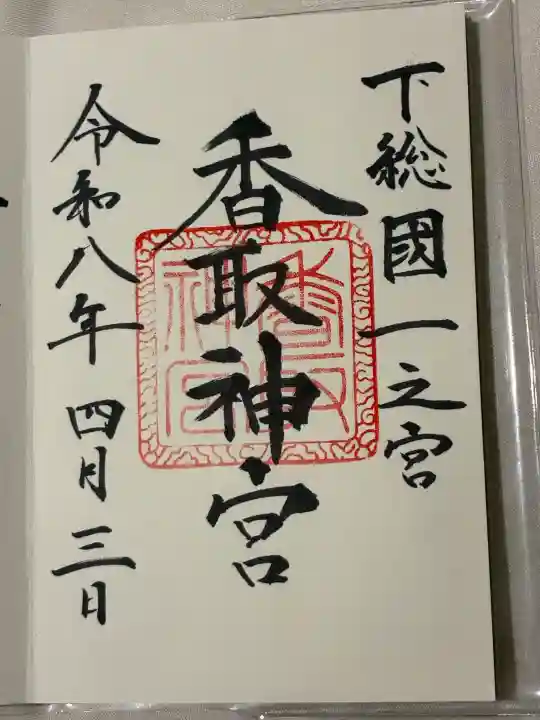 下総國一之宮
香取神宮
香取神宮
令和八年四月三日